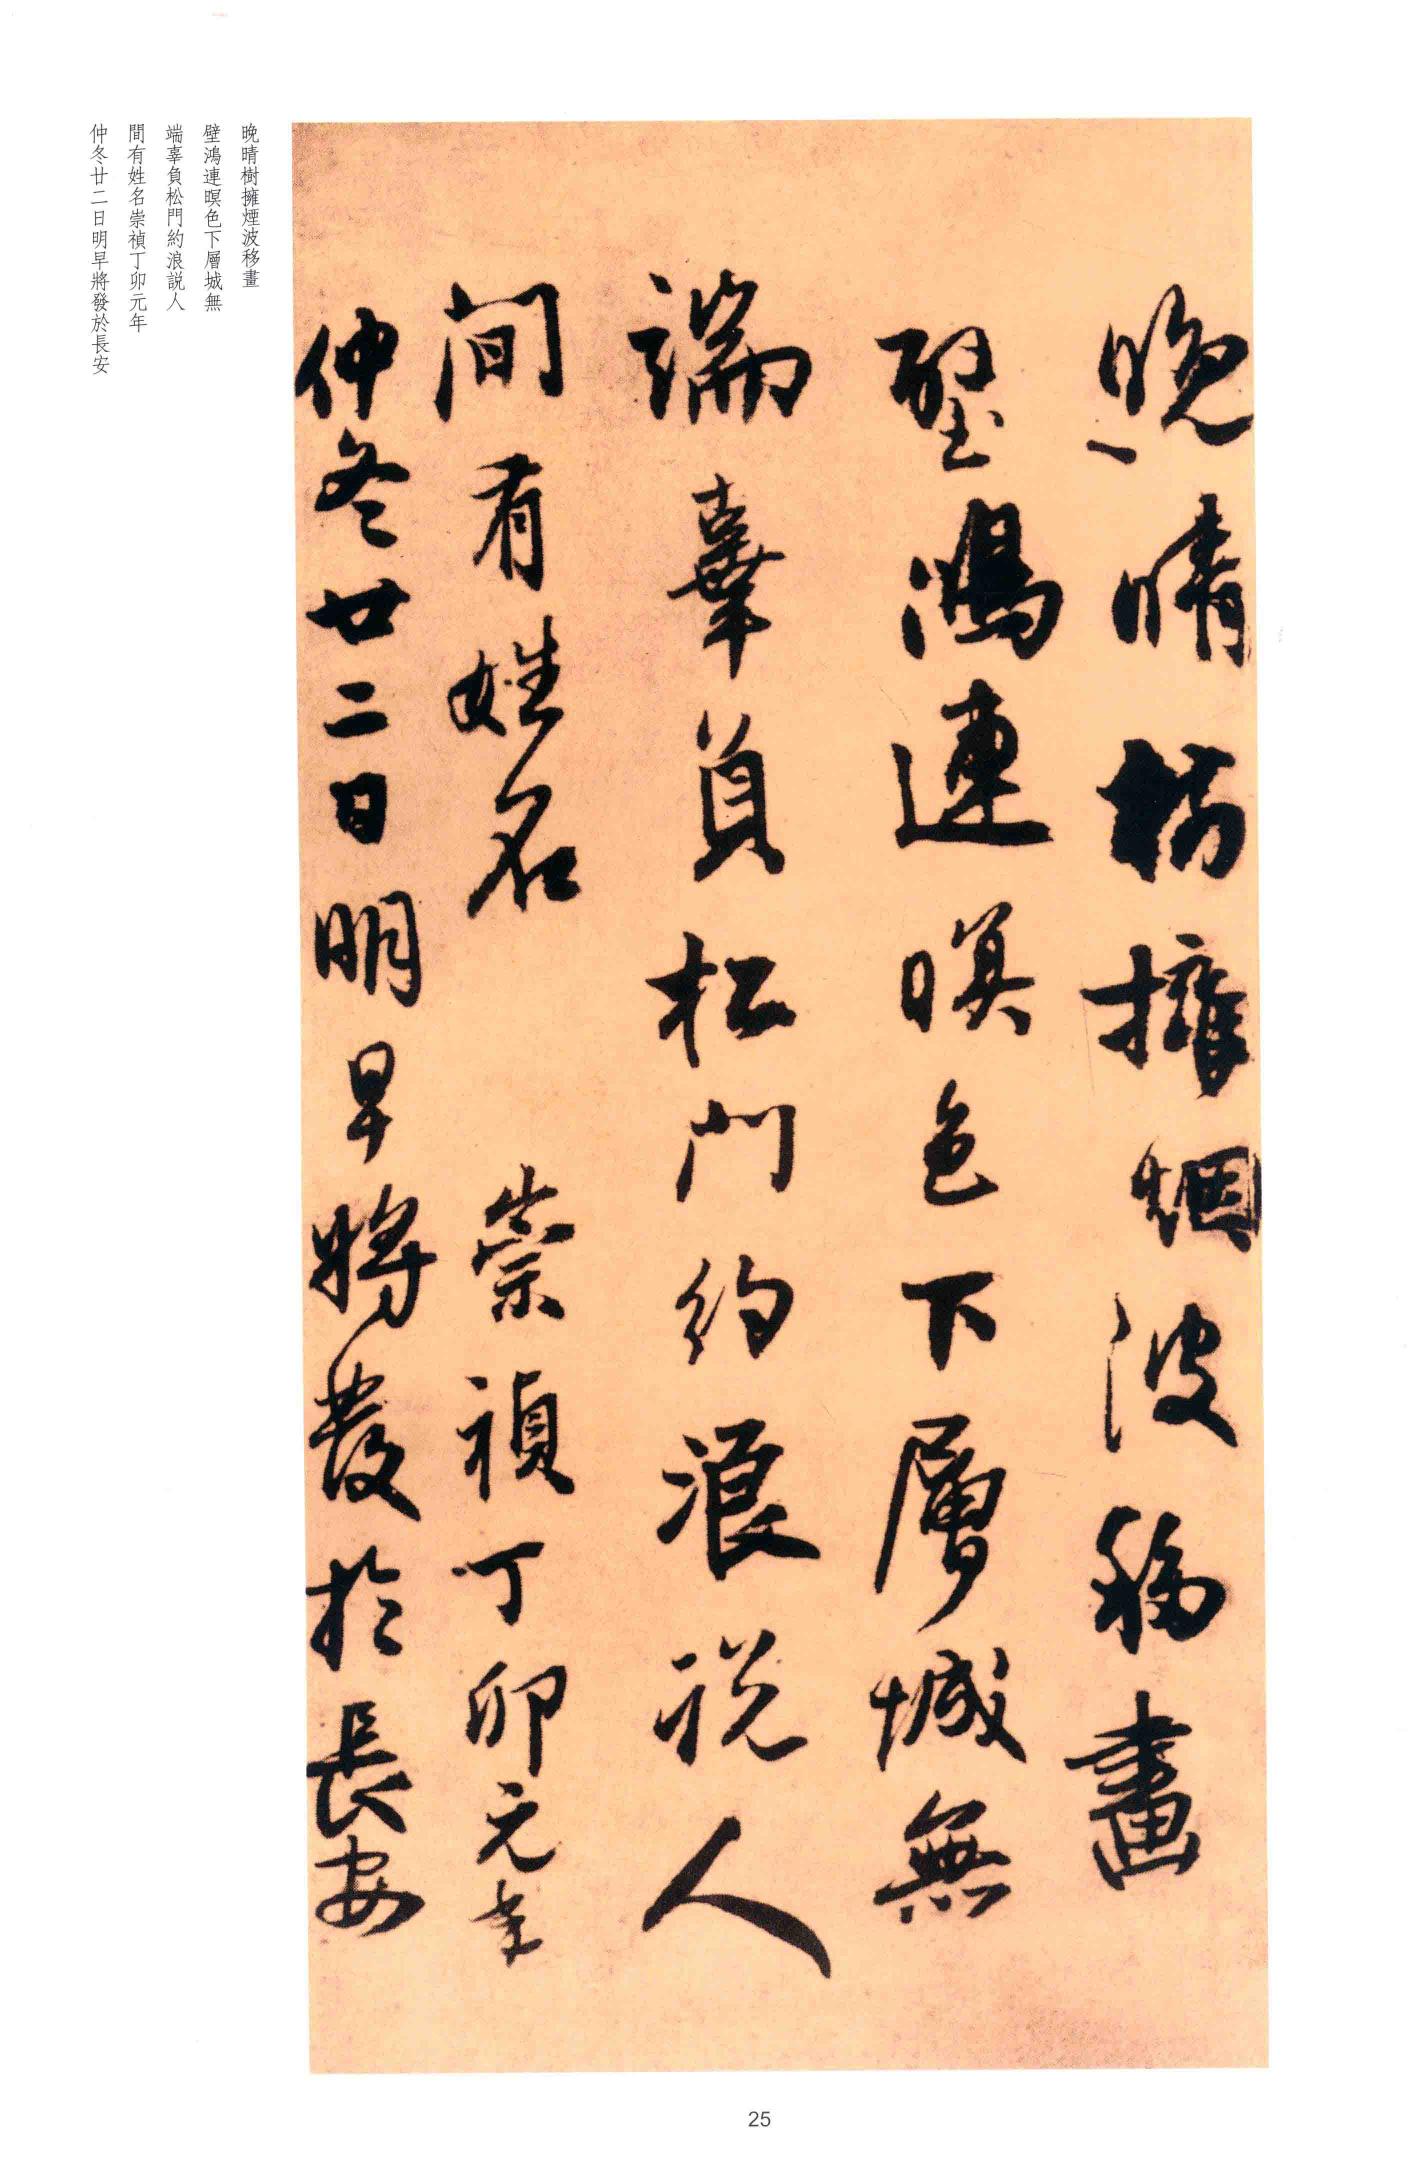 晚晴樹擁烟波移畫
壁鴻連暝色下層城無
端辜負松門約浪説人
間有姓名 崇禎丁卯元年
仲冬廿二日明早將發於長安
晚晴樹擁煙波移畫
壁鴻連暝色下層城無
端辜負松門約浪説人
間有姓名崇禎丁卯元年
仲冬廿二日明早將發於長安
25